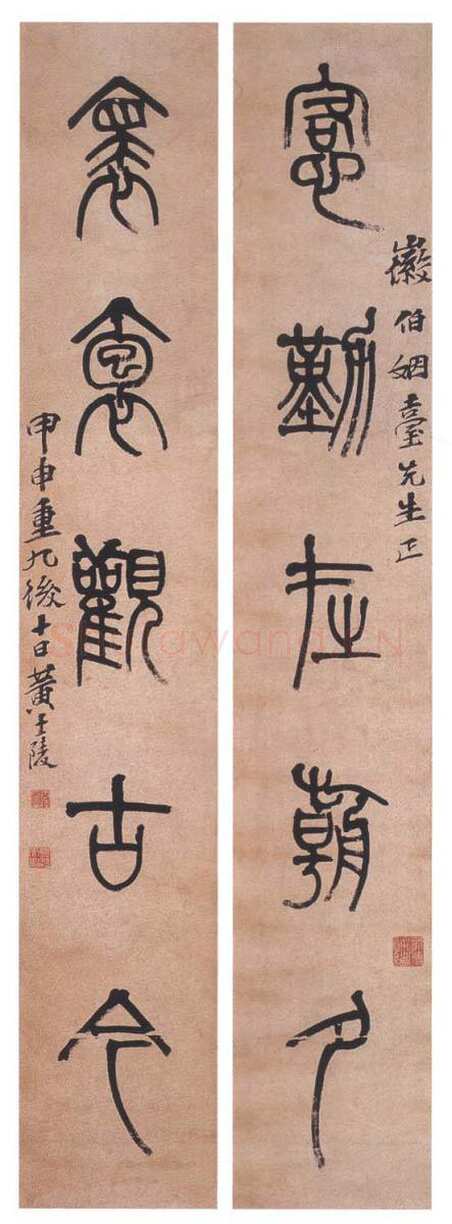 愙勤在朝夕
徽伯姻臺先生正
褱袌觀古今
甲申重九後十日黃士陵